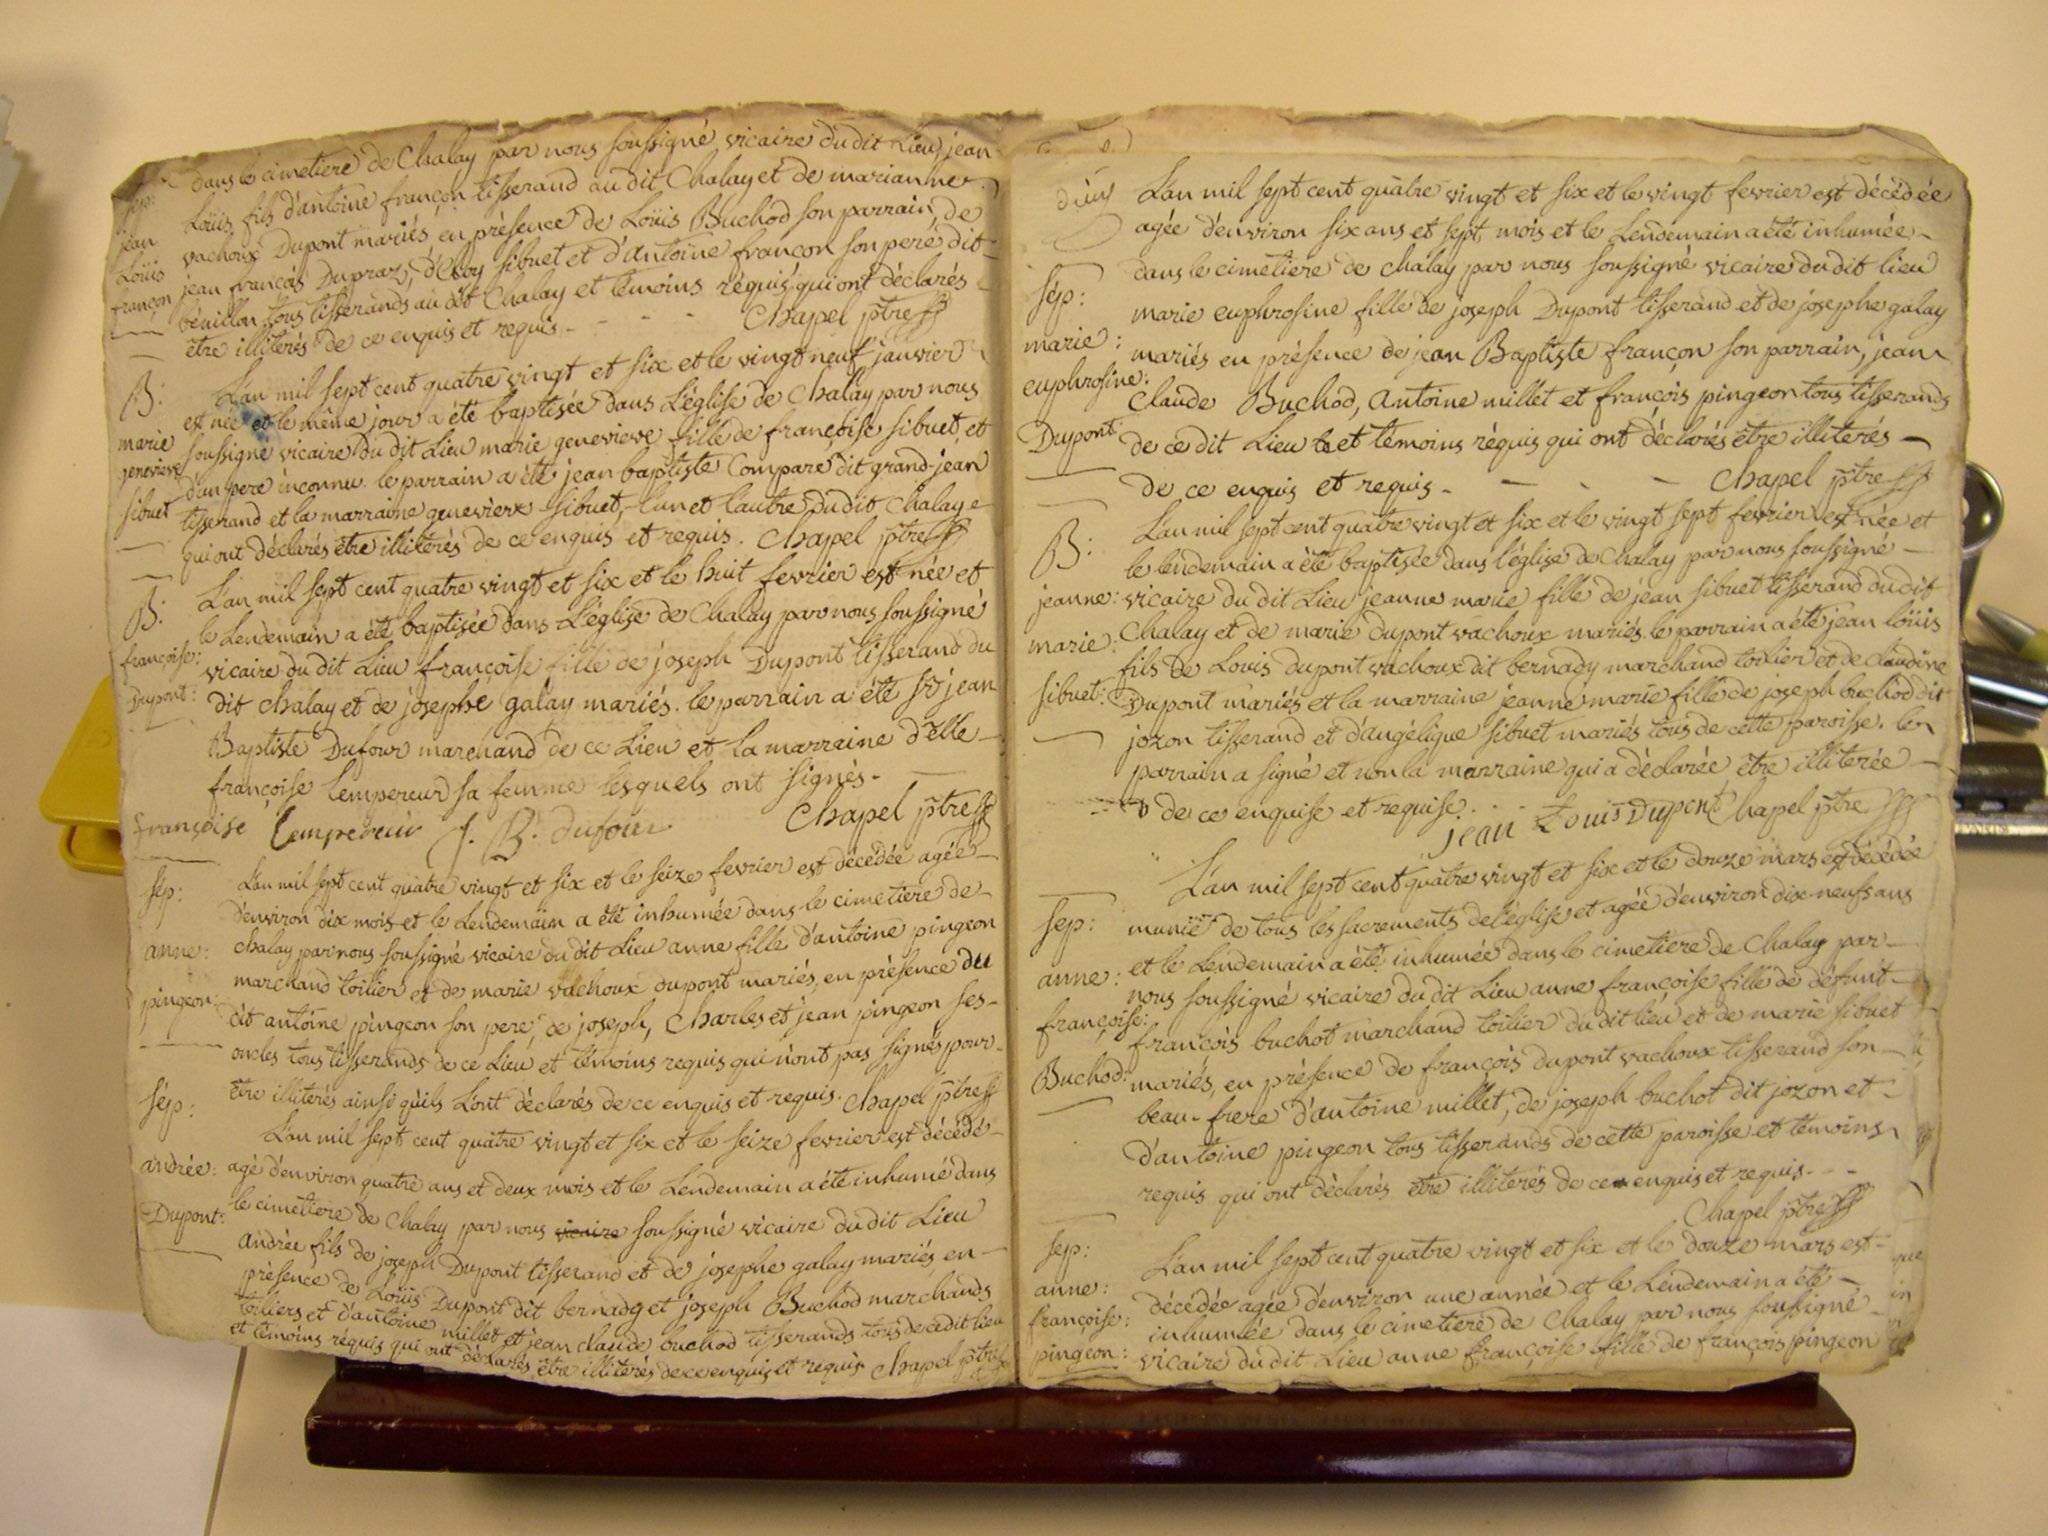 sép:
jean
Loüis
françon
dans le cimetiere de Chalay par nous soussigné vicaire du dit Lieu, jean
Loüis, fils d'antoine françon tisserand au dit Chalay et de marianne
vachoux Dupont mariés, en présence de Loüis Buchod son parrain, de
jean françois Dupraz, d'Eloy sibuet et d'antoine françon son peré dit
béuillon tous tisserands au dit Chalay et témoins réquis qui ont déclarés
être illiterés de ce enquis et requis - - - Chapel ptre
B:
marie
genevieve
sibuet
L'an mil sept cent quatre vingt et six et le vingt neuf janvier
est née et le même jour a été baptisée dans L'église de Chalay par nous
soussigné vicaire du dit Lieu marie genevieve fille de françoise sibuet, et
d'un pere inconnu. le parrain a été jean baptiste Compare dit grand-jean
tisserand et la marraine genevieve sibuet, lun et lautre du dit Chalay
qui ont déclarés être illiterés de ce enquis et requis. Chapel ptre
B:
françoise:
Dupont:
L'an mil sept cent quatre vingt et six et le huit fevrier est née et
le Lendemain a été baptisée dans L'église de Chalay par nous soussigné
vicaire du dit Lieu françoise fille de joseph Dupont tisserand du
dit chalay et de josephe galay mariés. le parrain a été sr jean
Baptiste Dufour marchand de ce Lieu et la marraine d'elle
françoise Lempereur sa femme lesquels ont signés -
françoise Lempereur J. B. dufour Chapel ptre
sép:
anne:
pingeon:
L'an mil sept cent quatre vingt et six et le seize fevrier est décédée agée
d'environ dix mois et le Lendemain a été inhumée dans le cimetiere de
Chalay par nous soussigné vicaire du dit Lieu anne fille d'antoine pingeon
marchand toilier et de marie vachoux dupont mariés, en présence du
dit antoine pingeon son pere, de joseph, Charles et jean pingeon ses
oncles tous tisserands de ce Lieu et témoins requis qui n'ont pas signés pour
être illiterés ainsi qùils L'ont déclarés de ce enquis et requis. Chapel ptre
sép:
andrée:
Dupont:
L'an mil sept cent quatre vingt et six et le seize fevrier est décédé
agé d'environ quatre ans et deux mois et le Lendemain a été inhumé dans
le cimetiere de Chalay par nous vicaire soussigné vicaire du dit Lieu
andrée fils de joseph Dupont tisserand et de josephe galay mariés en
présence de Loüis Dupont dit bernady et joseph Buchod marchands
toiliers et d'antoine millet et jean claude buchod tisserands tous de ce dit lieu
et témoins réquis qui ont déclarés être illiterés de ce enquis et requis Chapel ptre
sép:
marie:
euphrosine:
Dupont:
L'an mil sept cent quatre vingt et six et le vingt fevrier est décédée
agée d'environ six ans et sept mois et le Lendemain a été inhumée
dans le cimetiere de chalay par nous soussigné vicaire du dit lieu
marie euphrosine fille de joseph Dupont tisserand et de josephe galay
mariés en présence de jean Baptiste françon son parrain, jean
Claude Buchod, antoine millet et françois pingeon tous tisserands
de ce dit Lieu et témoins réquis qui ont déclarés être illiterés
de ce enquis et requis - - - Chapel ptre
B:
jeanne:
marie:
sibuet:
L'an mil sept cent quatre vingt et six et le vingt sept fevrier est née et
le lendemain a été baptisée dans l'église de Chalay par nous soussigné
vicaire du dit Lieu jeanne marie fille de jean sibuet tisserand du dit
Chalay et de marie dupont vachoux mariés. le parrain a été jean loüis
fils de Louis dupont vachoux dit bernady marchand toilier et de Claudine
Dupont mariés et la marraine jeanne marie fille de joseph buchod dit
jozon tisserand et d'angélique sibuet mariés tous de cette paroisse. le
parrain a signé et non la marraine qui a déclarée être illiterée
de ce enquise et requise. jean Louis Dupont Chapel ptre
sep:
anne:
françoise:
Buchod:
L'an mil sept cent quatre vingt et six et le douze mars est décédée
munie de tous les sacrements de l'église et agée d'environ dix-neufs ans
et le Lendemain a été inhumée dans le cimetiere de Chalay par
nous soussigné vicaire du dit Lieu anne françoise fille de défunt
françois buchot marchand toilier du dit lieu et de marie sibuet
mariés, en présence de françois dupont vachoux tisserand son
beau-frere d'antoine millet, de joseph buchot dit jozon et
d'antoine pingeon tous tisserands de cette paroisse et témoins
requis qui ont déclarés être illiterés de ce enquis et requis - - -
Chapel ptre
sep:
anne:
françoise:
pingeon:
L'an mil sept cent quatre vingt et six et le douze mars est
décédée agée d'environ une année et le Lendemain a été
inhumée dans le cimetiere de Chalay par nous soussigné
vicaire du dit Lieu anne françoise fille de françois pingeon